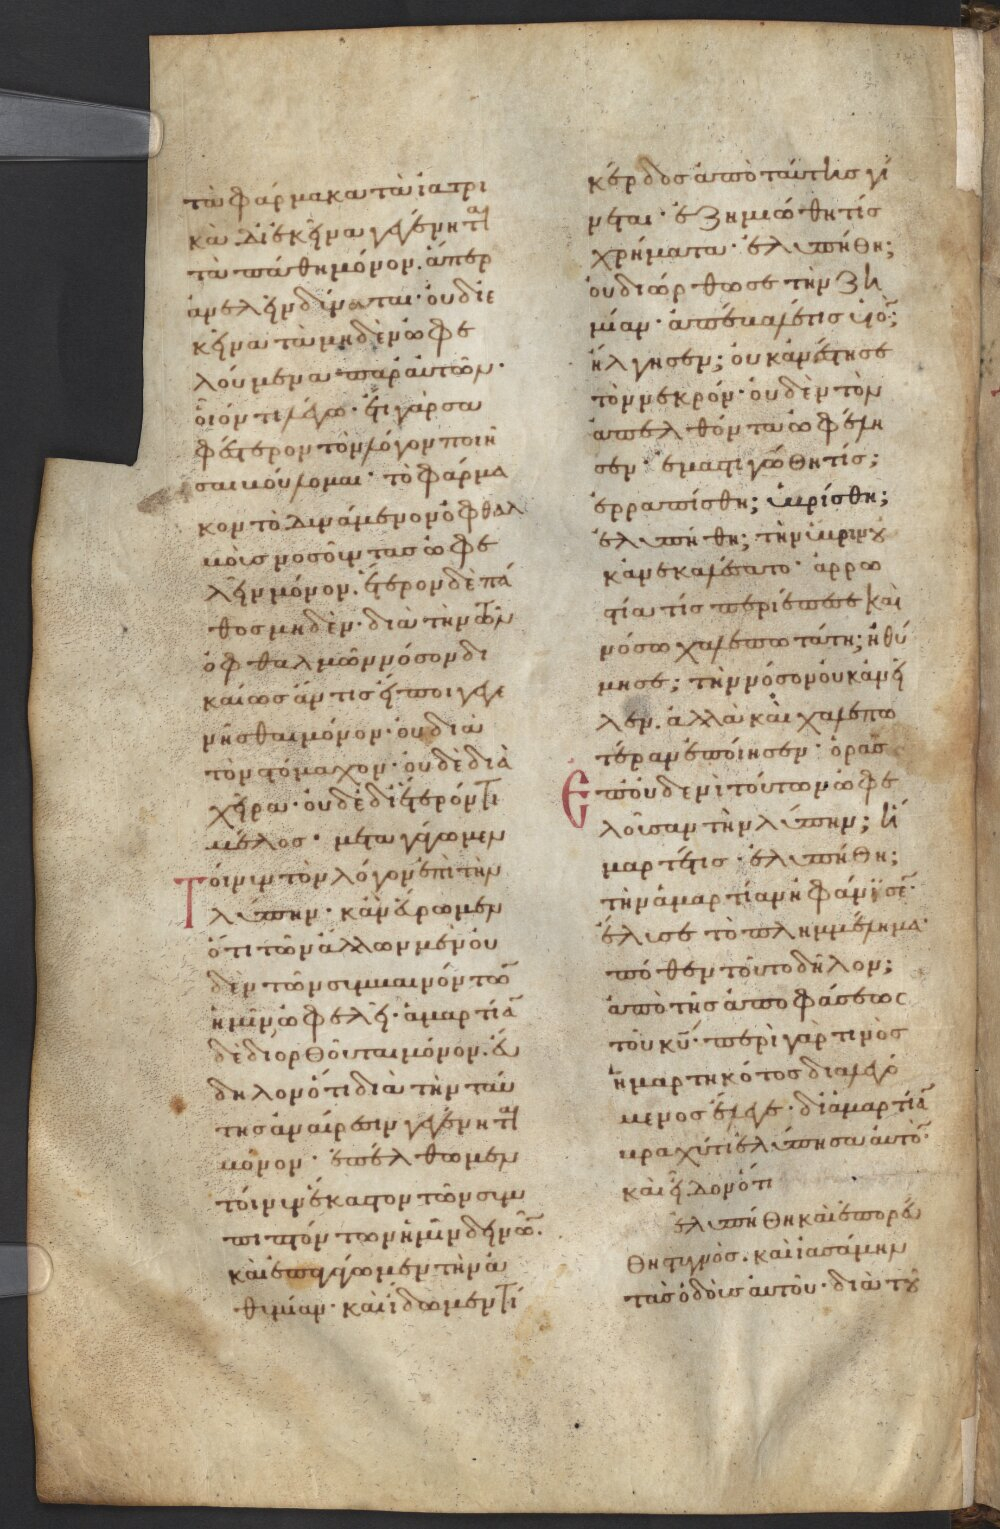 τὰ φάρμακα τὰ ἰατρι
κὰ δι' ἐκεῖνα γεγένηται
τὰ πάθη μόνον. ἅπερ
ἀνελεῖν δύναται· οὐ δι' ἐ
κεῖνα τὰ μηδὲν ὠφε
λούμενα παρ' αὐτῶν·
οἷόν τι λέγω· ἔτι γὰρ σα
φέστερον τὸν λόγον ποιῆ
σαι βούλομαι· τὸ φάρμα
κον τὸ δυνάμενον ὀφθαλ
μοὺς νοσοῦντας ὠφε
λεῖν μόνον. ἕτερον δὲ πά
θος μηδὲν· διὰ τὴν τῶν
ὀφθαλμῶν νόσον δι
καίως ἄν τις εἴποι γεγε
νῆσθαι μόνον· οὐ διὰ
τὸν στόμαχον· οὐδὲ διὰ
χεῖρα· οὐδὲ δι' ἕτερόν τι
μέλος· μεταγάγωμεν
τοίνυν τὸν λόγον ἐπὶ τὴν
λύπην· κἂν εὕρωμεν
ὅτι τῶν ἄλλων μὲν οὐ
δὲν τῶν συμβαινόντων
ἡμῖν ὠφελεῖ· ἁμαρτίαν
δὲ διορθοῦται μόνον. εὔ
δηλον ὅτι διὰ τὴν ταύ
της ἀναίρεσιν γεγένηται
μόνον· ἐπέλθωμεν
τοίνυν ἕκαστον τῶν συμ
πιπτόντων ἡμῖν δεινῶν.
καὶ ἐπαγάγωμεν τὴν ἀ
θυμίαν· καὶ ἴδωμεν τί
κέρδος ἀπὸ ταύτης γί
νεται· ἐζημιώθη τίς
χρήματα· ἐλυπήθη;
οὐ διώρθωσε τὴν ζη
μίαν· ἀπέβαλέ τις υἱόν;
ἤλγησεν; οὐκ ἀνέστησε
τὸν νεκρόν· οὐδὲν τὸν
ἀπελθόντα ὠφέλη
σεν· ἐμαστιγώθη τίς;
ἐρραπίσθη; ὑβρίσθη;
ἐλυπήθη; τὴν ὕβριν οὐ
κ ἀνεκαλέσατο· ἀρρω
στία τίς περιέπεσε καὶ
νόσω χαλεπωτάτη; ἠθύ
μησε; τὴν νόσον οὐκ ἀνεῖ
λεν. ἀλλὰ καὶ χαλεπω
τέραν ἐποίησεν· ὁρᾶς
ἐπ' οὐδενὶ τούτων ὠφε
λοῦσαν τὴν λύπην; ἥ
μαρτέ τις· ἐλυπήθη;
τὴν ἁμαρτίαν ἠφάνισεν·
ἔλυσε τὸ πλημμέλημα·
πόθεν τοῦτο δῆλον;
ἀπὸ τῆς ἀποφάσεως
τοῦ κυ· περὶ γὰρ τινὸς
ἡμαρτηκότος διαλεγό
μενος ἔλεγε· δι' ἁμαρτίαν
βραχύ τι ἐλύπησα αὐτόν·
καὶ εἶδον ὅτι
ἐλυπήθη καὶ ἐπορεύ
θη στυγνὸς. καὶ ἰασάμην
τὰς ὁδοὺς αὐτοῦ· διὰ τοῦ